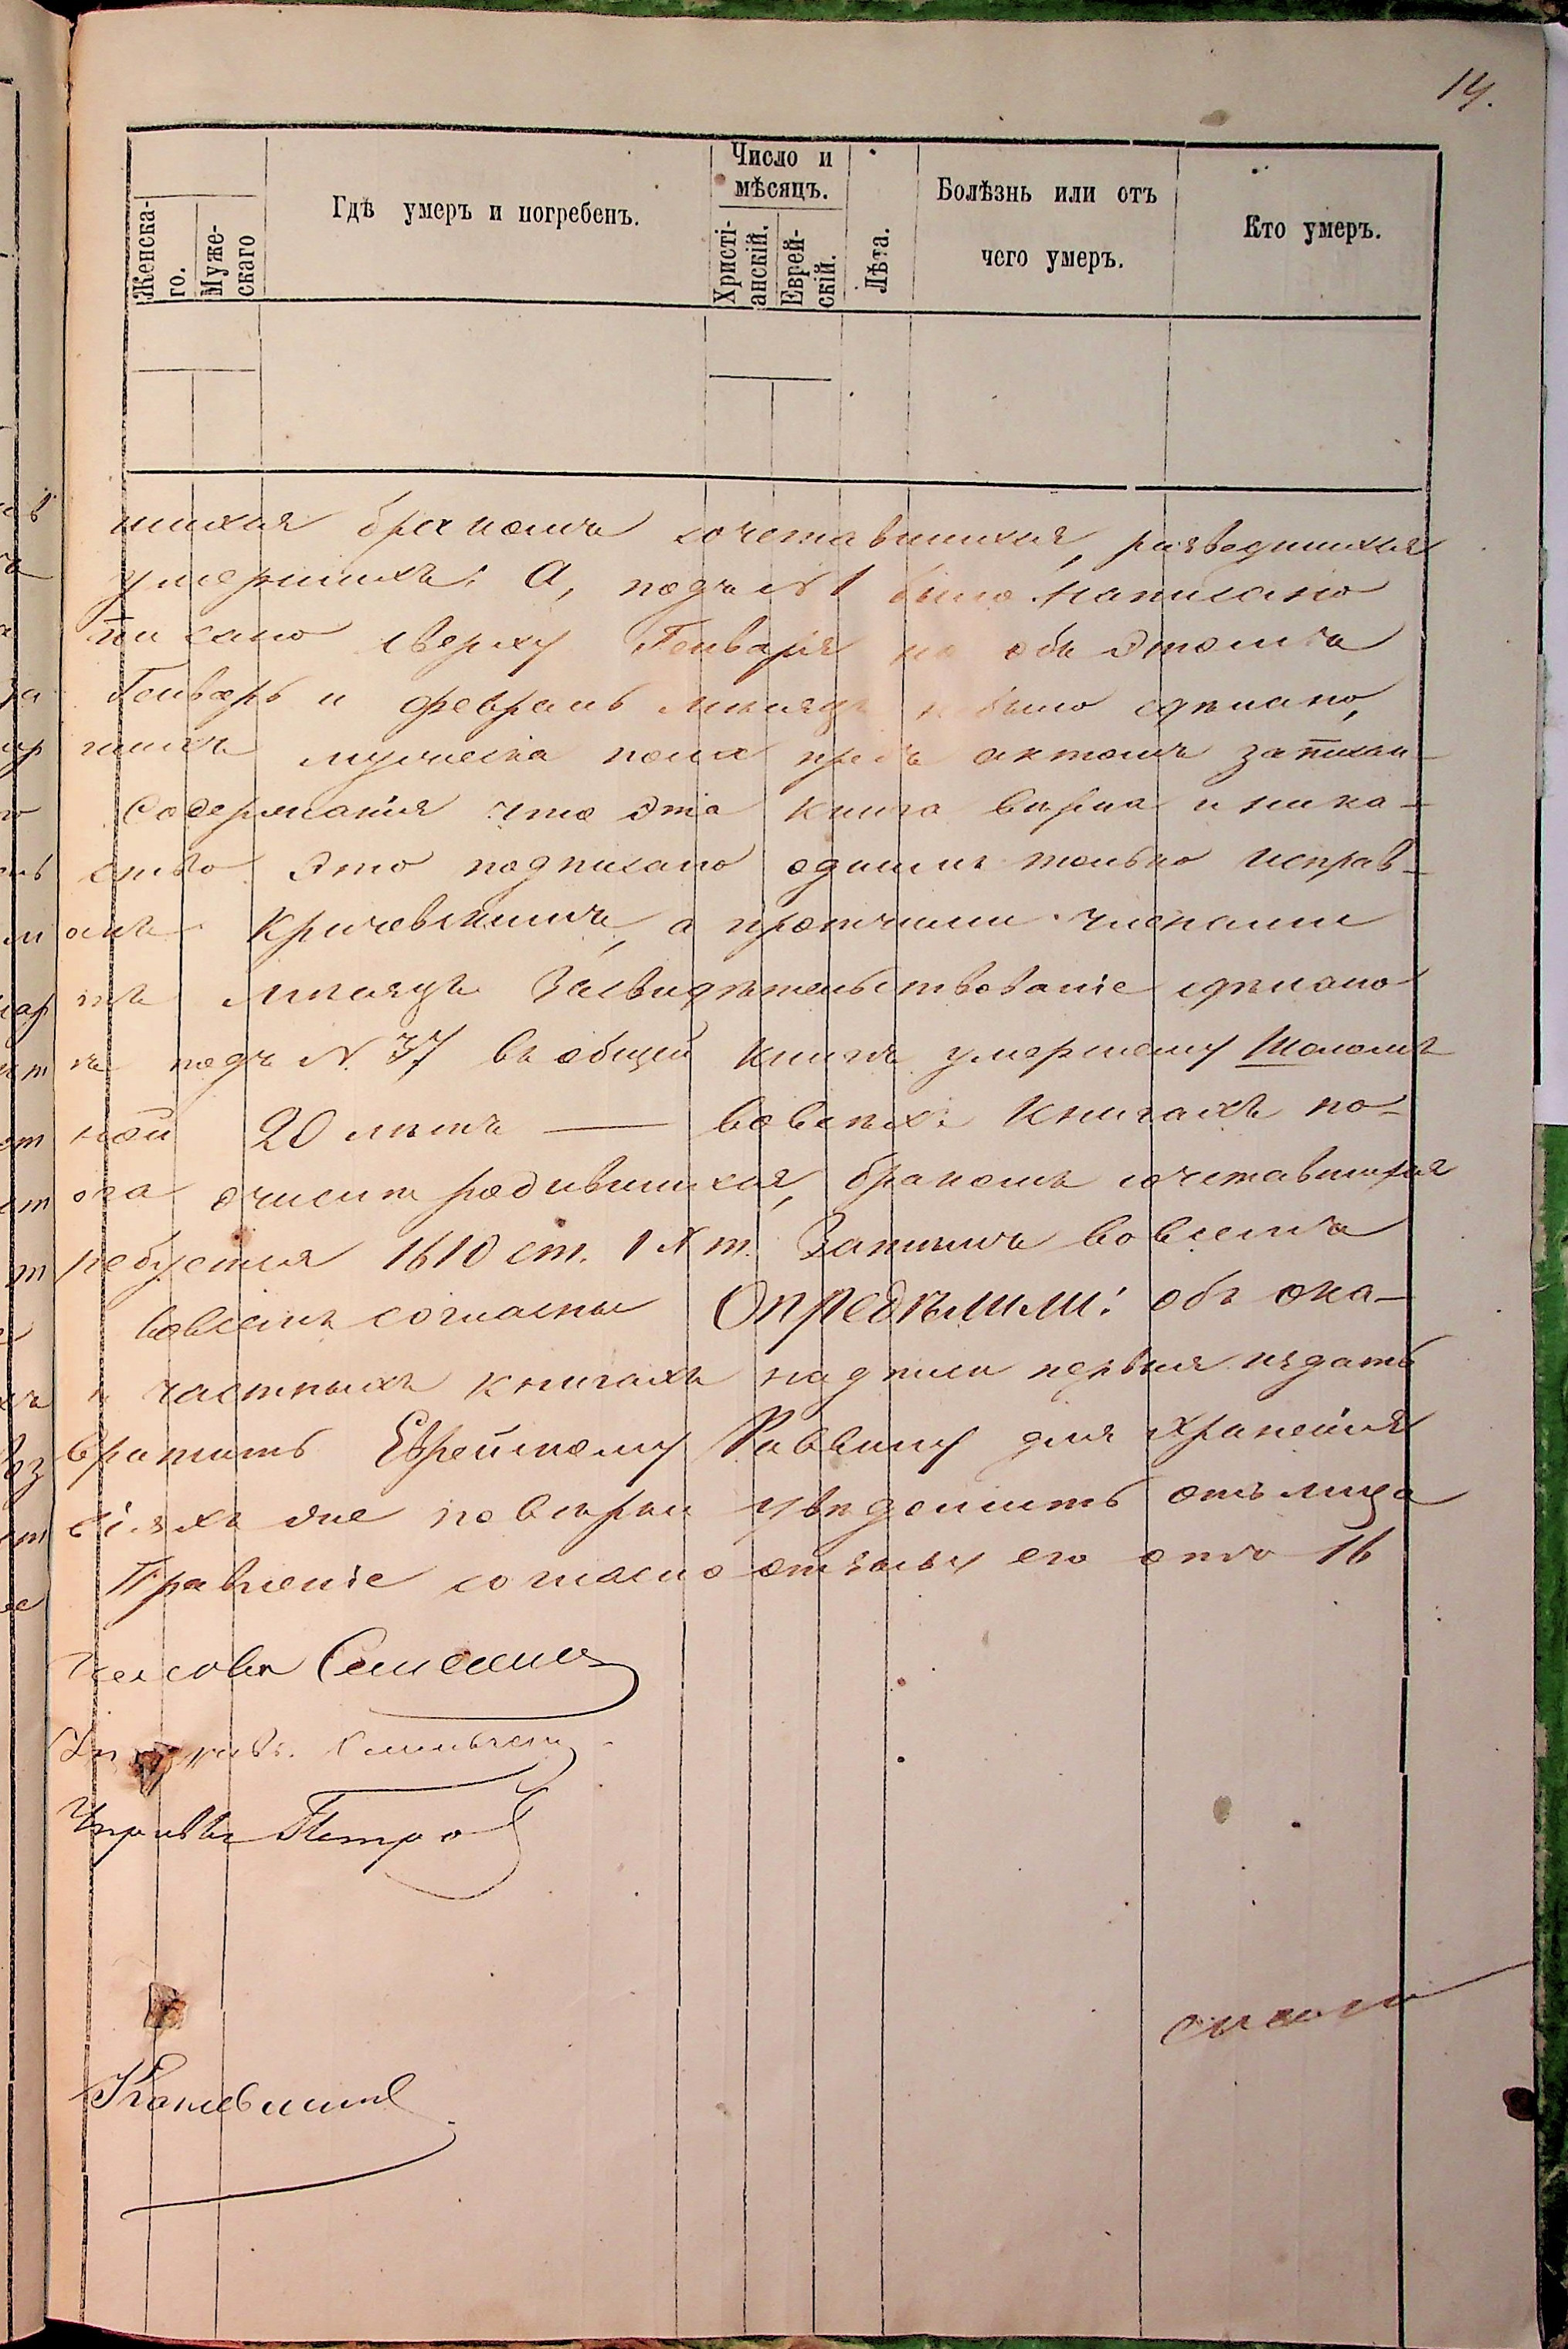 14.
Женска-
го.
Муже-
скаго
Гдѣ умеръ и погребенъ.
Число и
мѣсяцъ.
Христі-
анскій.
Еврей-
скій.
Лѣта.
Болѣзнь или отъ
чего умеръ.
Кто умеръ.
шихся бракомъ сочетавшихся, разведшихся
умершихъ: А, подъ № 1 было написано
писано сверху Генваря но объ этомъ
Генварь и февраль мѣсяцъ небыло сдѣлано,
шихъ мужеска пола предъ актомъ записан-
Содержанія что эта книга вѣрна и ника-
ство это подписано однимъ только Исправ-
омъ Кричевскимъ, а прочими членами
мѣсяцъ Засвидѣтельствованіе сдѣлано
подъ N. 37 въ общей книгѣ умершему Шоломъ
ной 20 лѣтъ — вовсѣхъ Книгахъ по-
ога очислѣ родившихся, бракомъ сочетавшихся
ребуется 1610 ст. IX т. Затѣмъ вовсемъ
вовсемъ согласны Опредѣлили: объ ока-
и частныхъ книгахъ надписи первыя издать
вратить Еврейскому Раввину для храненія
сіяхъ же повѣрки увѣдомить отъ лица
Правленіе согласно отзыву его отъ 16
Петро